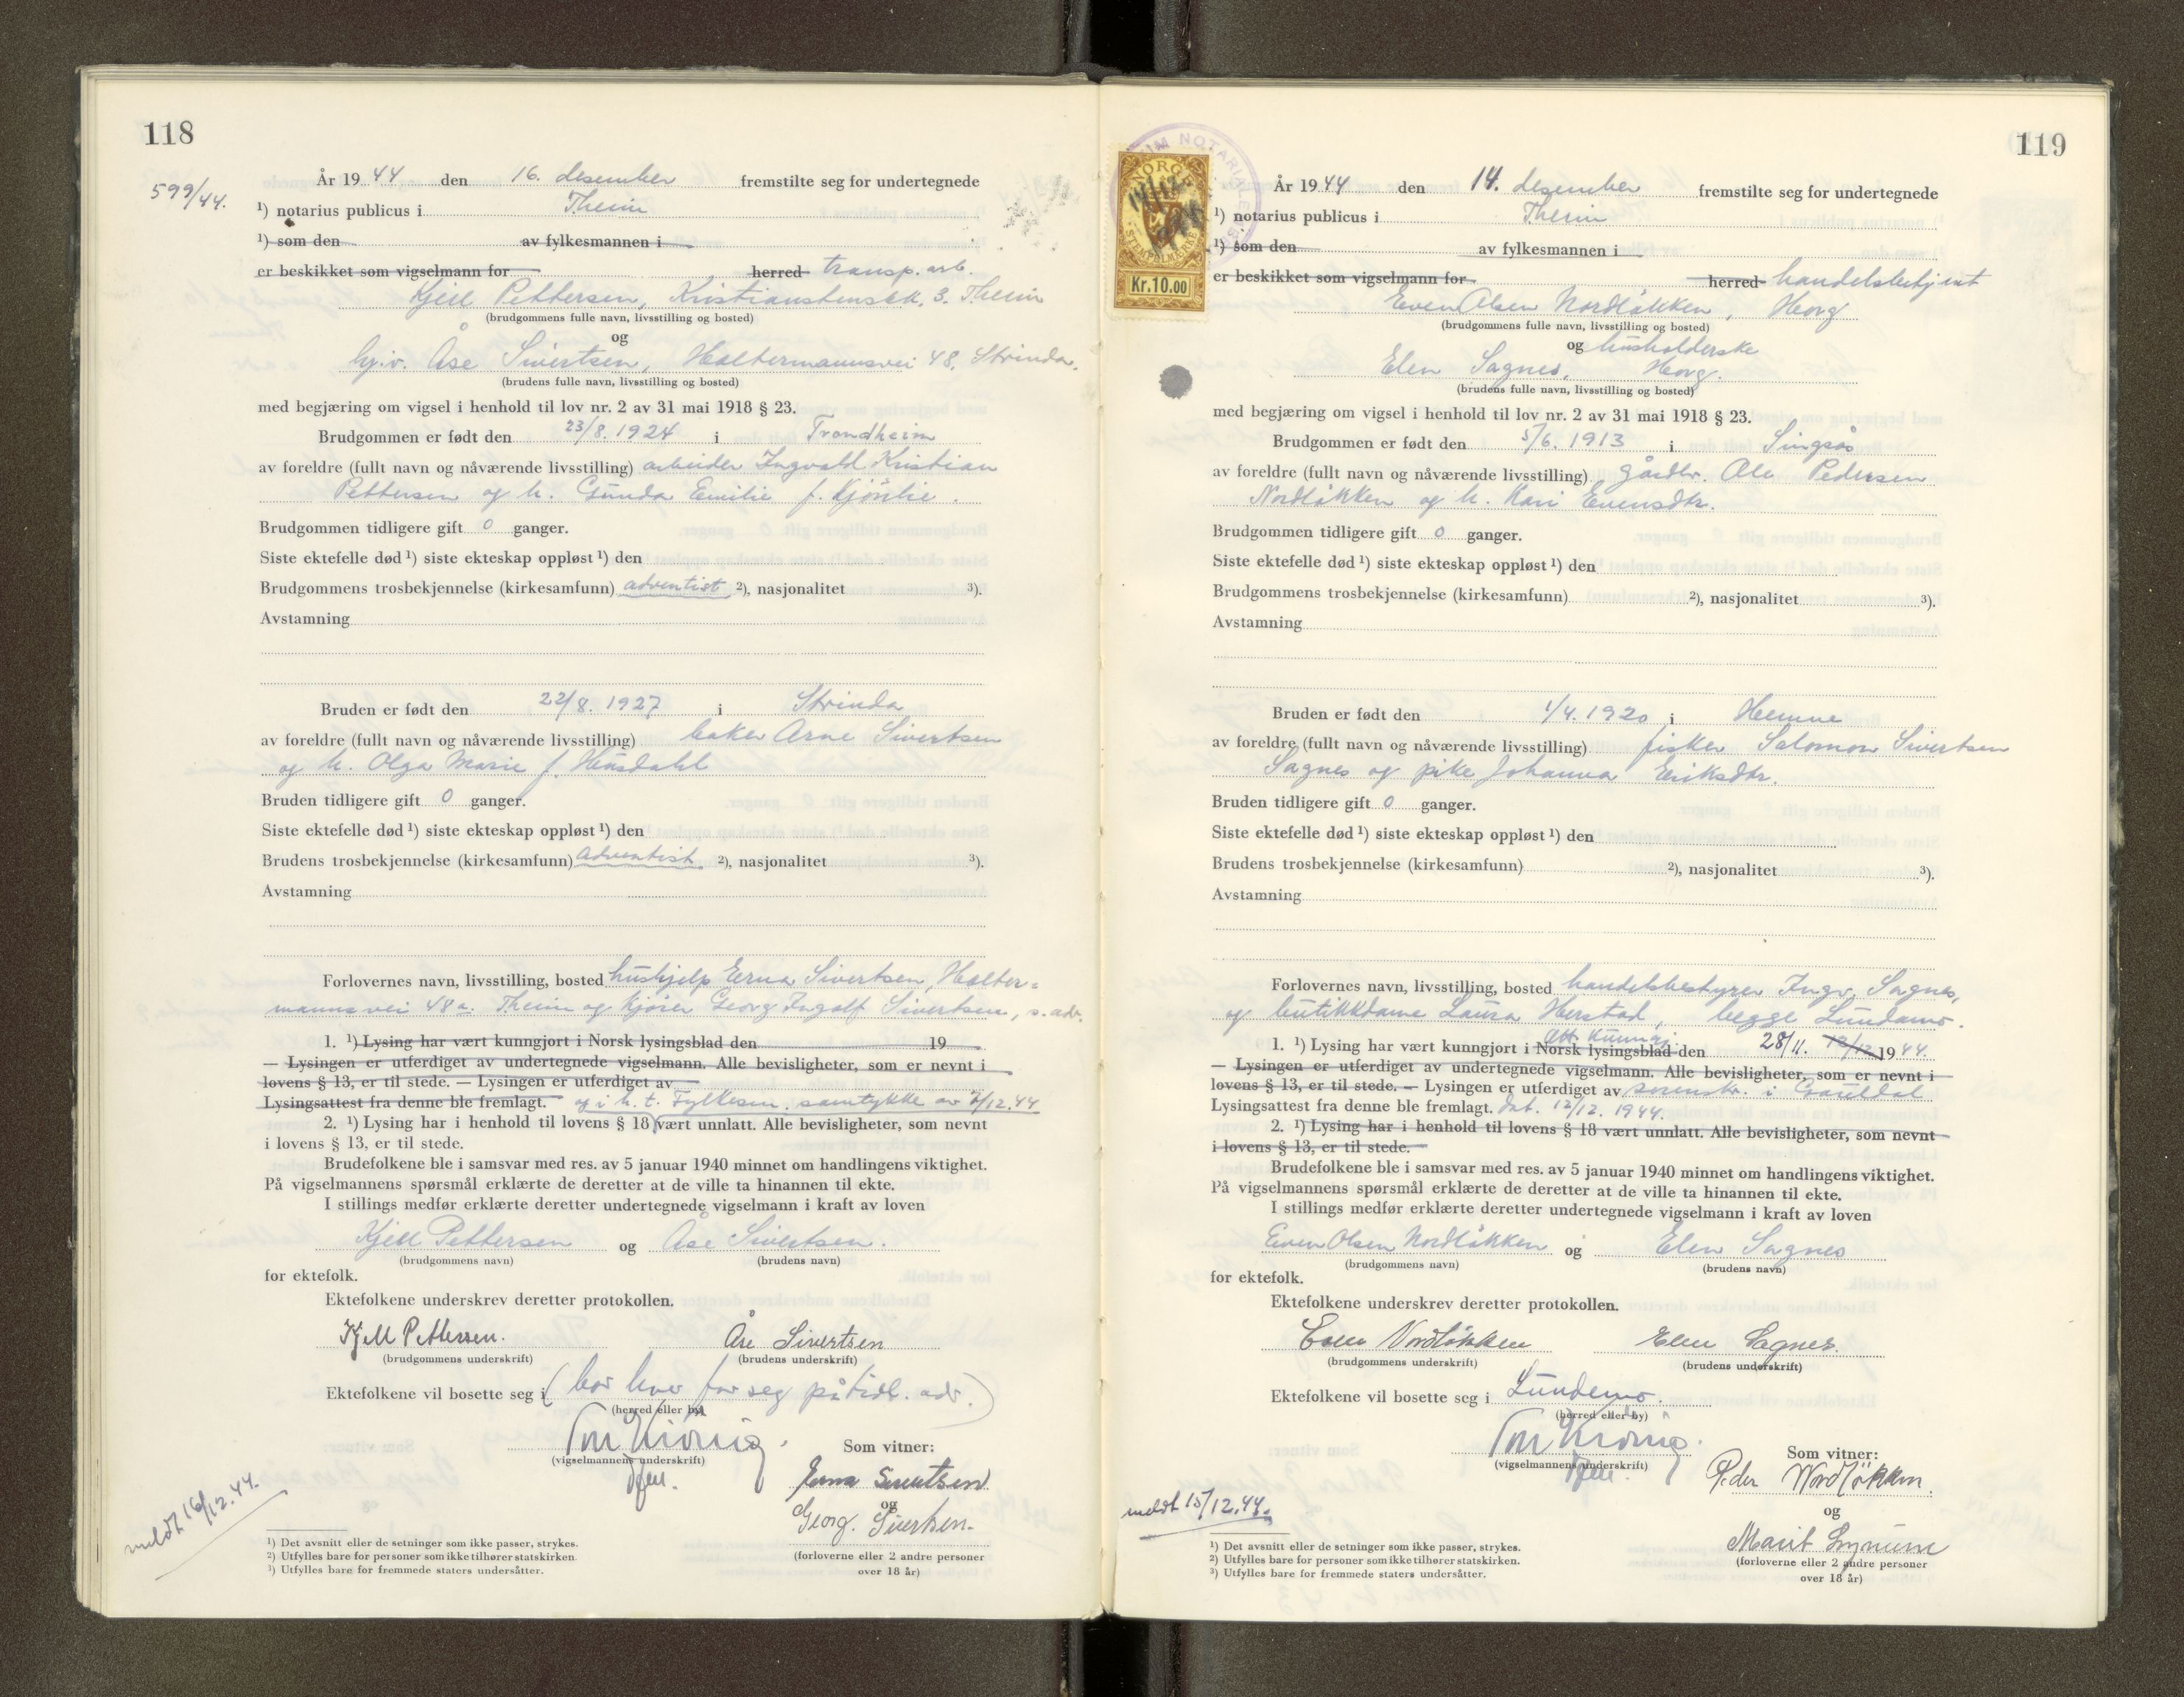 118
599/44.
År 19 44 den 16. desember fremstilte seg for undertegnede
¹) notarius publicus i Theim
¹) som den av fylkesmannen i
er beskikket som vigselmann for herred transp. arb.
Kjell Pettersen, Kristianstensbk. 3. Theim
(brudgommens fulle navn, livsstilling og bosted)
og
hj.v. Åse Sivertsen, Haltermannsvei 48, Strinda.
(brudens fulle navn, livsstilling og bosted)
med begjæring om vigsel i henhold til lov nr. 2 av 31 mai 1918 § 23.
Brudgommen er født den 23/8. 1924 i Trondheim
av foreldre (fullt navn og nåværende livsstilling) arbeider Ingvald Kristian
Pettersen og h. Gunda Emilie f. Kjönlie.
Brudgommen tidligere gift 0 ganger.
Siste ektefelle død ¹) siste ekteskap oppløst ¹) den
Brudgommens trosbekjennelse (kirkesamfunn) adventist ²), nasjonalitet ³).
Avstamning
Bruden er født den 22/8. 1927 i Strinda
av foreldre (fullt navn og nåværende livsstilling) baker Arne Sivertsen
og h. Olga Marie f. Husdahl
Bruden tidligere gift 0 ganger.
Siste ektefelle død ¹) siste ekteskap oppløst ¹) den
Brudens trosbekjennelse (kirkesamfunn) adventist ²), nasjonalitet ³).
Avstamning
Forlovernes navn, livsstilling, bosted hushjelp Erna Sivertsen, Halter=
mannsvei 48a. Theim og kjörer Georg Ingolf Sivertsen, s. adr.
1. ¹) Lysing har vært kunngjort i Norsk lysingsblad den 19
— Lysingen er utferdiget av undertegnede vigselmann. Alle bevisligheter, som er nevnt i
lovens § 13, er til stede. — Lysingen er utferdiget av
Lysingsattest fra denne ble fremlagt. og i h. t. Fylkesm. samtykke av 7/12.44
2. ¹) Lysing har i henhold til lovens § 18 vært unnlatt. Alle bevisligheter, som nevnt
i lovens § 13, er til stede.
Brudefolkene ble i samsvar med res. av 5 januar 1940 minnet om handlingens viktighet.
På vigselmannens spørsmål erklærte de deretter at de ville ta hinannen til ekte.
I stillings medfør erklærte deretter undertegnede vigselmann i kraft av loven
Kjell Pettersen og Åse Sivertsen.
(brudgommens navn) (brudens navn)
for ektefolk.
Ektefolkene underskrev deretter protokollen.
Kjell Pettersen. Åse Sivertsen
(brudgommens underskrift) (brudens underskrift)
Ektefolkene vil bosette seg i (bor hver for seg på tidl. adr.)
(herred eller by)
(vigselmannens underskrift)
Som vitner:
Erna Sivertsen
og
Georg. Sivertsen.
(forloverne eller 2 andre personer
over 18 år)
meldt 16/12.44.
¹) Det avsnitt eller de setninger som ikke passer, strykes.
²) Utfylles bare for personer som ikke tilhører statskirken.
³) Utfylles bare for fremmede staters undersåtter.
119
NORGE
14/12
1944
STEMPELMERKE
Kr.10.00
År 19 44 den 14. desember fremstilte seg for undertegnede
¹) notarius publicus i Theim
¹) som den av fylkesmannen i
er beskikket som vigselmann for herred handelsbetjent
Even Olsen Nordløkken, Horg
(brudgommens fulle navn, livsstilling og bosted)
og husholderske
Elen Sagnes, Horg.
(brudens fulle navn, livsstilling og bosted)
med begjæring om vigsel i henhold til lov nr. 2 av 31 mai 1918 § 23.
Brudgommen er født den 5/6. 1913 i Singsås
av foreldre (fullt navn og nåværende livsstilling) gårdbr. Ole Pedersen
Nordløkken og h. Kari Evensdtr.
Brudgommen tidligere gift 0 ganger.
Siste ektefelle død ¹) siste ekteskap oppløst ¹) den
Brudgommens trosbekjennelse (kirkesamfunn) ²), nasjonalitet ³).
Avstamning
Bruden er født den 1/4. 1920 i Hemne
av foreldre (fullt navn og nåværende livsstilling) fisker Salomon Sivertsen
Sagnes og pike Johanna Eriksdtr.
Bruden tidligere gift 0 ganger.
Siste ektefelle død ¹) siste ekteskap oppløst ¹) den
Brudens trosbekjennelse (kirkesamfunn) ²), nasjonalitet ³).
Avstamning
Forlovernes navn, livsstilling, bosted handelsbestyrer Ingv. Sagnes,
og butikkdame Laura Herstad, begge Lundamo.
1. ¹) Lysing har vært kunngjort i Norsk lysingsblad den 28/11. 12/12 19 44.
— Lysingen er utferdiget av undertegnede vigselmann. Alle bevisligheter, som er nevnt i
lovens § 13, er til stede. — Lysingen er utferdiget av sorenskr. i Gauldal
Lysingsattest fra denne ble fremlagt. dat. 12/12. 1944.
2. ¹) Lysing har i henhold til lovens § 18 vært unnlatt. Alle bevisligheter, som nevnt
i lovens § 13, er til stede.
Brudefolkene ble i samsvar med res. av 5 januar 1940 minnet om handlingens viktighet.
På vigselmannens spørsmål erklærte de deretter at de ville ta hinannen til ekte.
I stillings medfør erklærte deretter undertegnede vigselmann i kraft av loven
Even Olsen Nordløkken og Elen Sagnes
(brudgommens navn) (brudens navn)
for ektefolk.
Ektefolkene underskrev deretter protokollen.
Even Nordløkken Elen Sagnes.
(brudgommens underskrift) (brudens underskrift)
Ektefolkene vil bosette seg i Lundemo.
(herred eller by)
(vigselmannens underskrift)
Som vitner:
Peder Nordløkken.
og
Marit
(forloverne eller 2 andre personer
over 18 år)
meldt 15/12.44.
¹) Det avsnitt eller de setninger som ikke passer, strykes.
²) Utfylles bare for personer som ikke tilhører statskirken.
³) Utfylles bare for fremmede staters undersåtter.